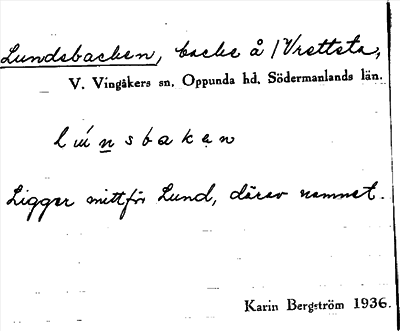 Lundsbacken, backe å /Vrettsta,
V. Vingåkers sn. Oppunda hd. Södermanlands län.
lúnsbakən
Ligger mittför Lund, därav namnet.
Karin Bergström 1936.